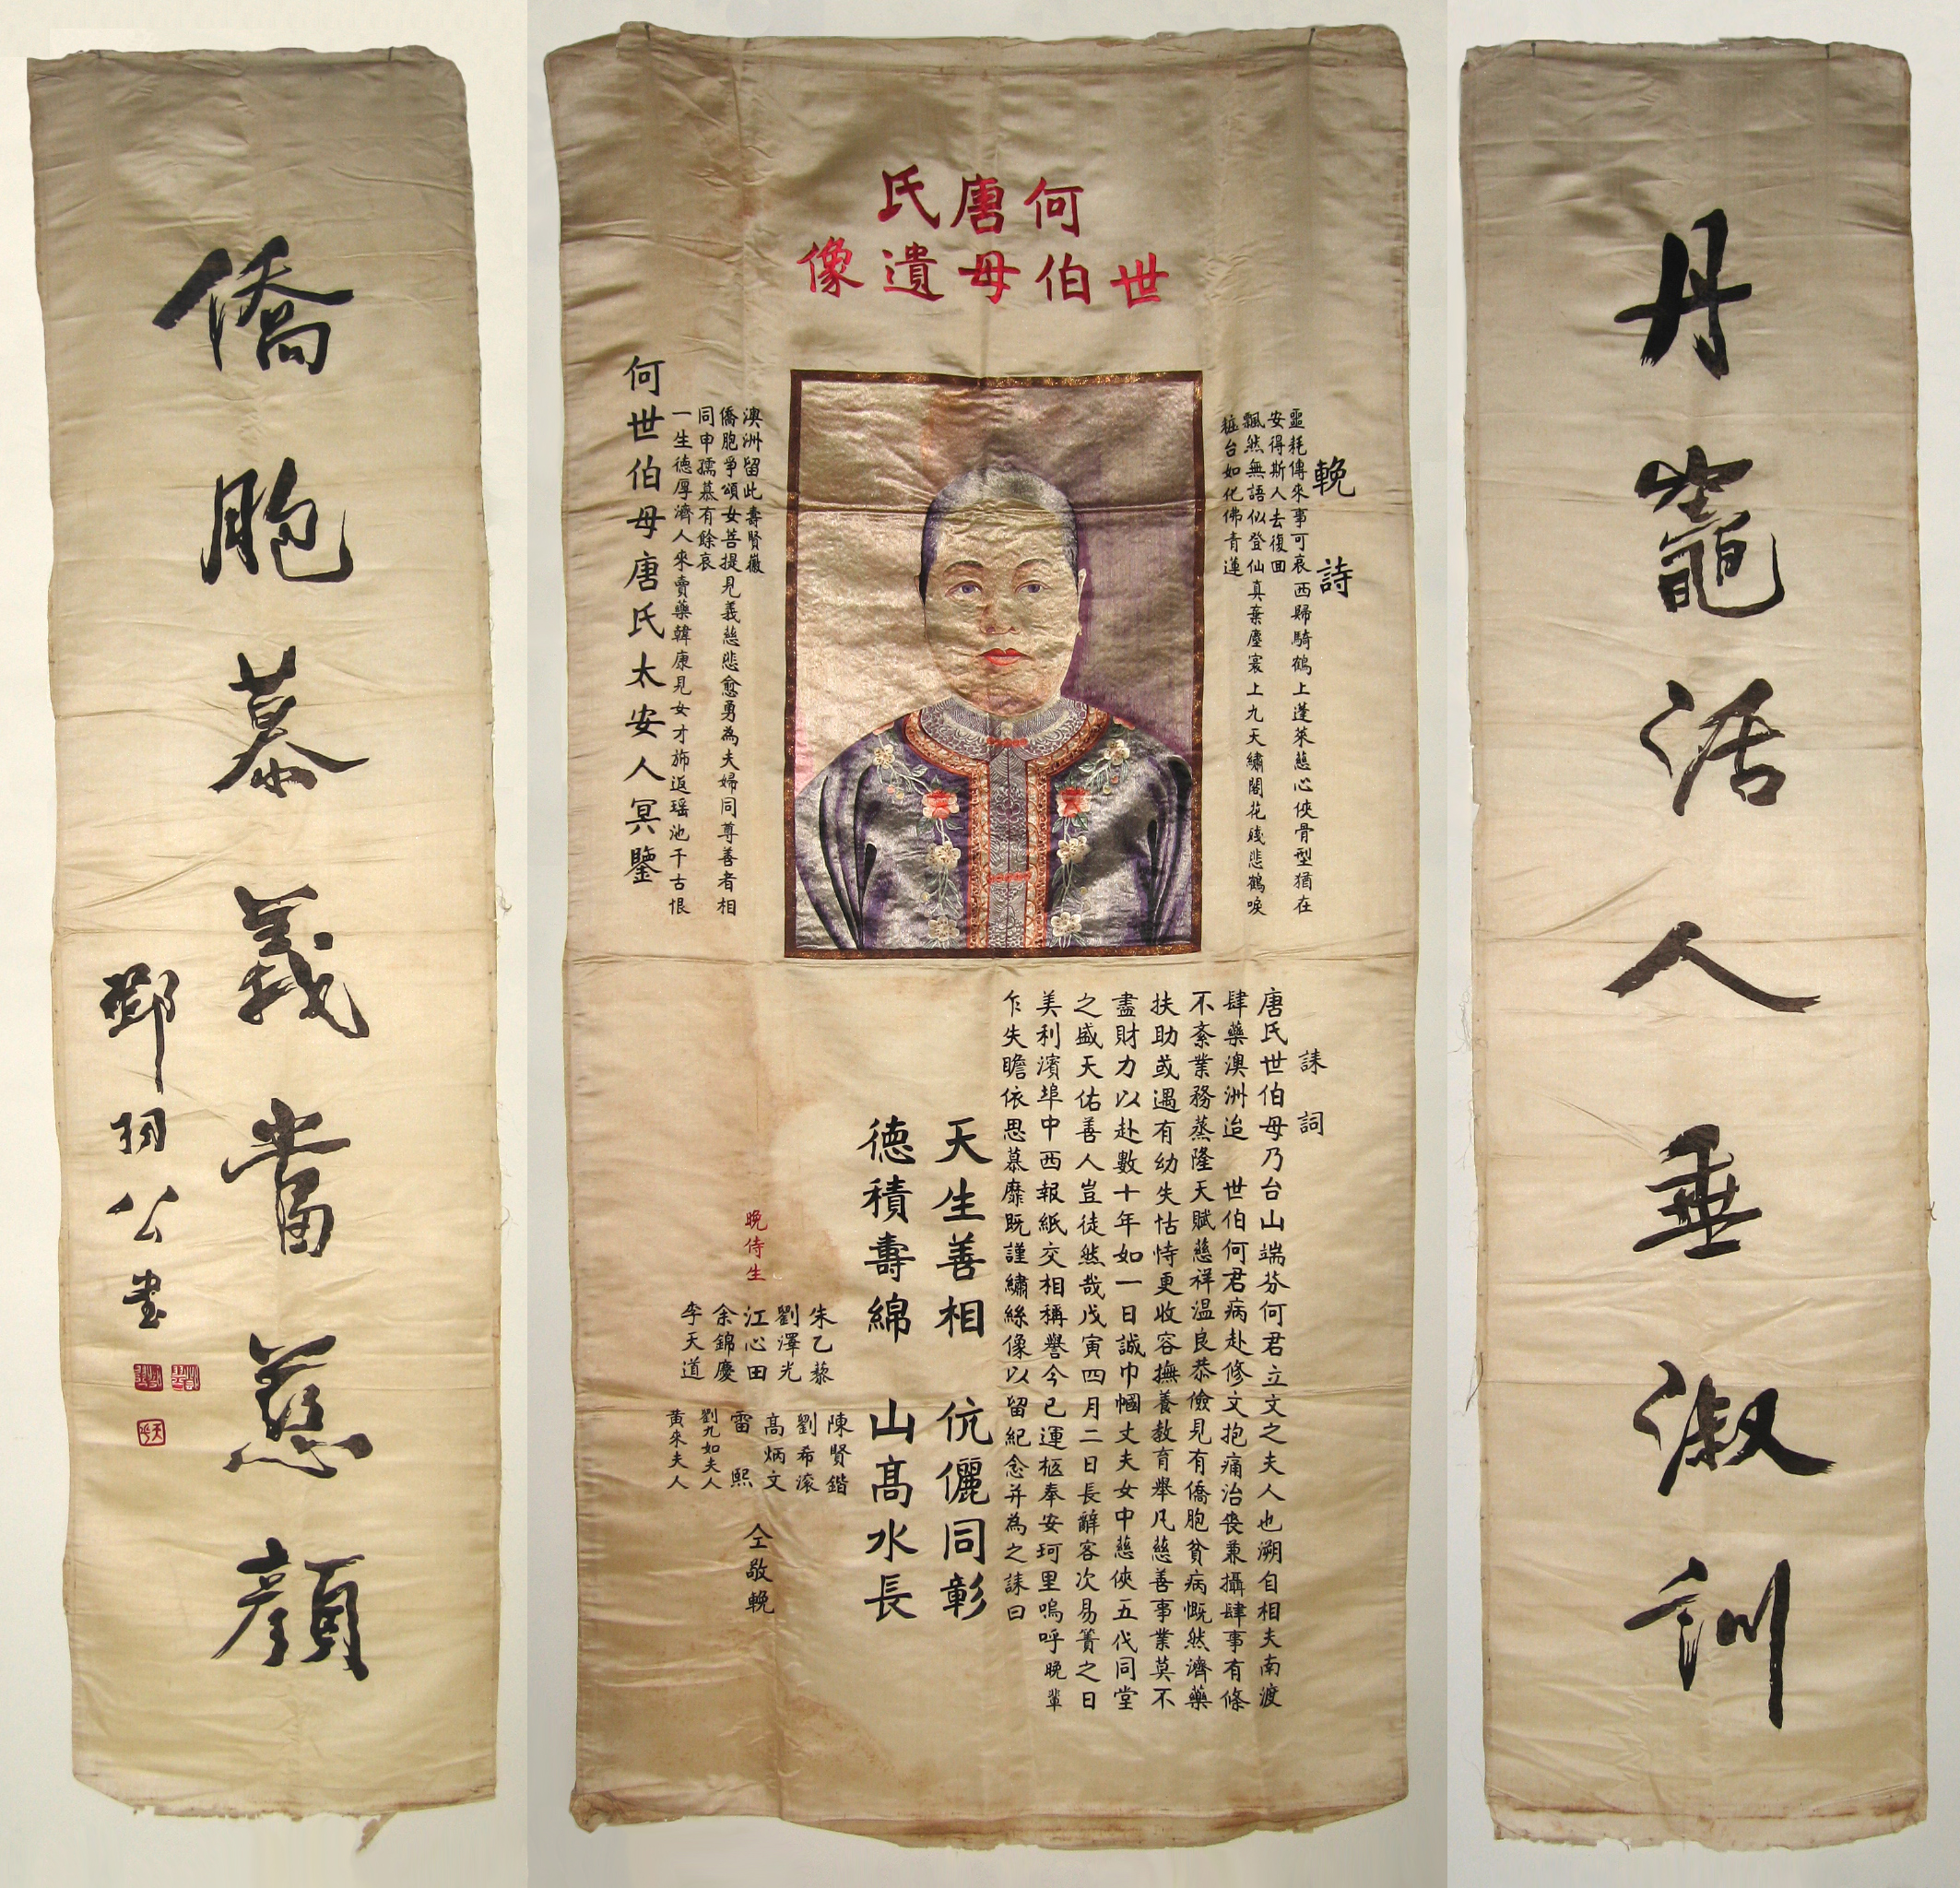 丹竈活人垂淑訓
何唐氏
世伯母遺像
輓詩
噩耗傳來事可哀西歸騎鶴上蓬萊慈心俠骨型猶在
安得斯人去復回
飄然無語似登仙真棄塵寰上九天繡閣花殘悲鶴唳
粧台如化佛青蓮
澳洲留此壽賢徽
僑胞爭頌女菩提見義慈悲愈勇為夫婦同尊善者相
同申孺慕有餘哀
一生德厚濟人來賣藥韓康見女才旆返瑤池千古恨
何世伯母唐氏太安人冥鑒
誄詞
唐氏世伯母乃台山端芬何君立文之夫人也溯自相夫南渡
肆藥澳洲迨 世伯何君病赴修文抱痛治喪兼攝肆事有條
不紊業務蒸隆天賦慈祥温良恭儉見有僑胞貧病慨然濟藥
扶助或遇有幼失怙恃更收容撫養教育舉凡慈善事業莫不
盡財力以赴數十年如一日誠巾幗丈夫女中慈俠五代同堂
之盛天佑善人豈徒然哉戊寅四月二日長辭客次易簀之日
美利濱埠中西報紙交相稱譽今已運柩奉安珂里嗚呼晚輩
乍失瞻依思慕靡既謹繡絲像以留紀念并為之誄曰
天生善相 伉儷同彰
德積壽綿 山高水長
晚侍生
朱乙藜
劉澤光
江心田
余錦慶
李天道
陳賢鍇
劉希滚
高炳文
雷熙
劉九如夫人
黃來夫人
仝敬輓
僑胞慕義當慈顏
鄧羽公書